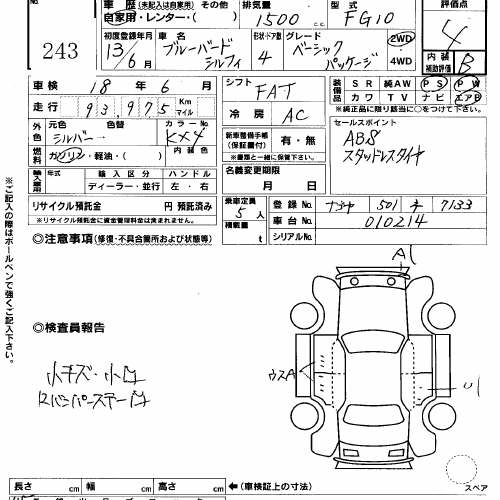 車歴 (未記入は自家用) その他
自家用・レンター・( )
排気量 1500 cc
型式 FG10
評価点 4
243
初度登録年月 13/6月
車名 ブルーバードシルフィ
ドア 4
グレード ベーシックパッケージ
2WD
4WD
内装補助評価 B
車検 18年 6月
シフト FAT
装備品 SR 純AW PS PW
カワ TV ナビ エアB
※純正品に限り該当に○をつけて下さい
走行 93,975 Km マイル
冷房 AC
セールスポイント
ABS
スタッドレスタイヤ
外色 元色 色替 カラーNo.
シルバー KX4
内装色
燃料 ガソリン・軽油・( )
新車整備手帳(保証書付) 有・無
※書類と一緒に保管して下さい。
輸入車用 輸入区分 ハンドル
ディーラー・並行 左・右
名義変更期限 月 日
リサイクル預託金 円 預託済み
※リサイクル預託金に資金管理料金は含まれません。
乗車定員 5人
積載量 t
登録No. 501 7133
車台No. 010214
シリアルNo.
◎注意事項 (修復・不具合箇所および状態等)
※ご記入の際はボールペンで強くご記入下さい。
A
◎検査員報告
小キズ・小凹
ウスA
長さ cm 幅 cm 高さ cm ←(車検証上の寸法)
スペア